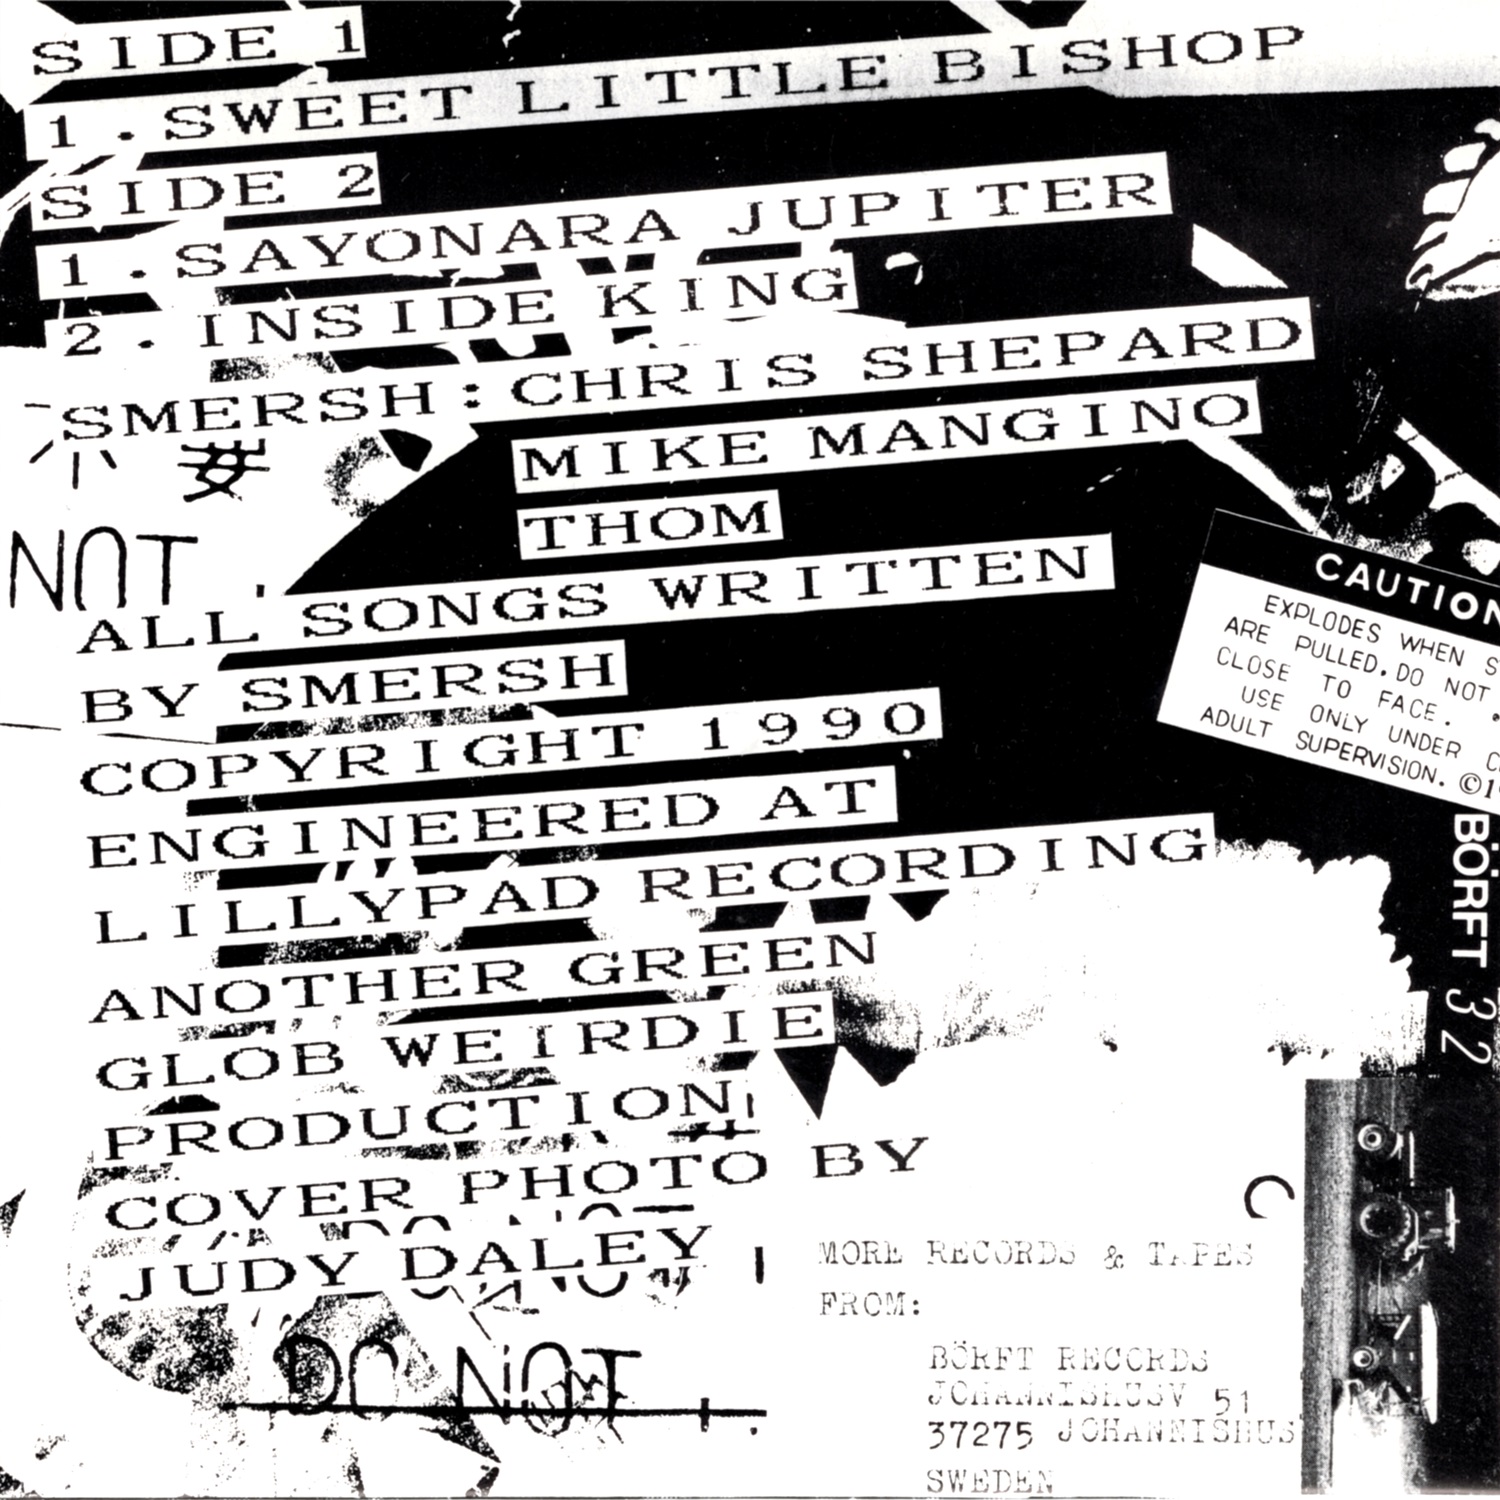 SIDE 1
1.SWEET LITTLE BISHOP
SIDE 2
1.SAYONARA JUPITER
2.INSIDE KING
SMERSH:CHRIS SHEPARD
MIKE MANGINO
THOM
NOT
ALL SONGS WRITTEN
BY SMERSH
COPYRIGHT 1990
ENGINEERED AT
LILLYPAD RECORDING
ANOTHER GREEN
GLOB WEIRDIE
PRODUCTION
COVER PHOTO BY
JUDY DALEY
DO NOT
CAUTION
EXPLODES WHEN S
ARE PULLED. DO NOT
CLOSE TO FACE.
USE ONLY UNDER
ADULT SUPERVISION. ©1
BÖRFT 32
MORE RECORDS & TAPES
FROM:
BÖRFT RECORDS
JOHANNISHUSV 51
37275 JOHANNISHUS
SWEDEN